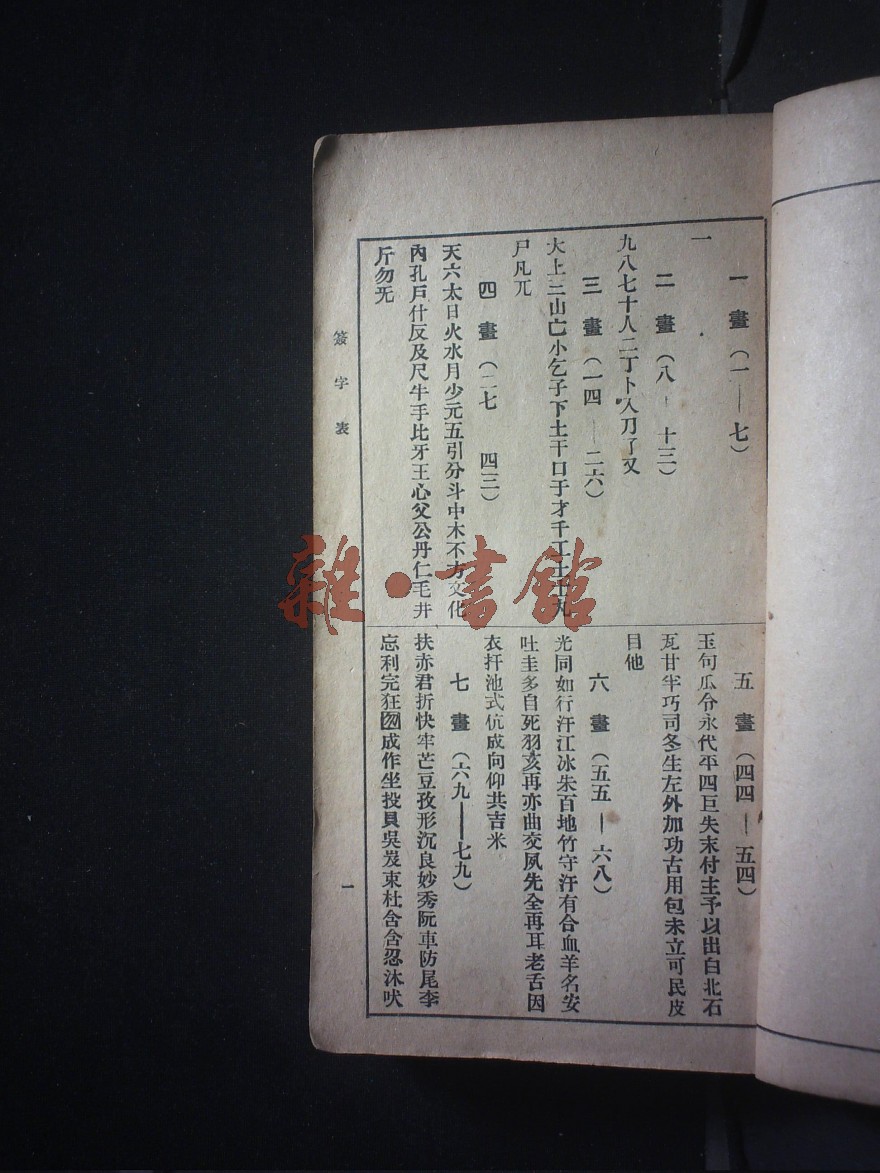 一畫(一——七)
一
二畫(八——十三)
九八七十人二丁卜入刀了又
三畫(一四——二六)
大上三山亡小乞子下土干口于才千工士寸丸
尸凡兀
四畫(二七 四三)
天六太日火水月少元五引分斗中木不方文化
內孔戶什反及尺牛手比牙王心父公丹仁毛井
斤勿旡
五畫(四四——五四)
玉句瓜令永代平四巨失末付主予以出白北石
瓦甘半巧司冬生左外加功古用包未立可民皮
目他
六畫(五五——六八)
光同如行汗江冰朱百地竹守汗有合血羊名安
吐圭多自死羽亥再亦曲交夙先全再耳老舌因
衣扞池式伉成向仰共吉米
七畫(六九——七九)
扶赤君折快牢芒豆孜形沉良妙秀阮車防尾李
忘利完狂囫成作坐投貝吳岌束杜含含忍沐吠
簽字表
一
雜·書館